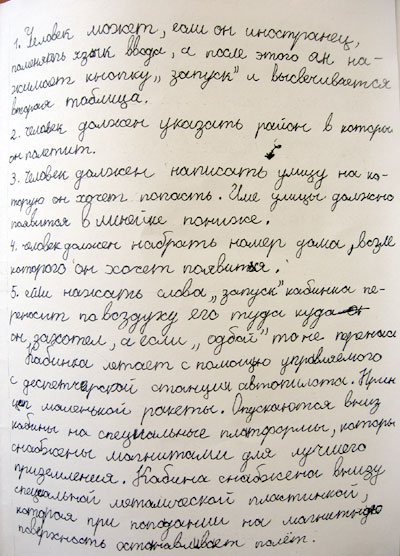 1. Человек может, если он иностранец,
поменять язык ввода, а после этого он на-
жимает кнопку „запуск" и высвечивается
вторая таблица.
2. Человек должен указать район в которы
он полетит.
3. Человек должен написать улицу на ко-
торую он хочет попасть. Имя улицы должно
появится в линейке пониже.
4. Человек должен набрать номер дама, возле
которого он хочет появится.
5. если нажать слова „запуск" кабинка пе-
реносит по воздуху его туда куда
он, захотел, а если „одбой" то не перенас
Кабинка летает с помощью управляемого
с деспетчерской станции автопилота. Прин
цеп маленькой ракеты. Опускаются вниз
кабины на специальные платформы, которы
снабжены магнитами для лучшего
приземления. Кабина снабжена внизу
специальной металической пластинкой,
которая при попадании на магнитную
поверхность останавливает полёт.